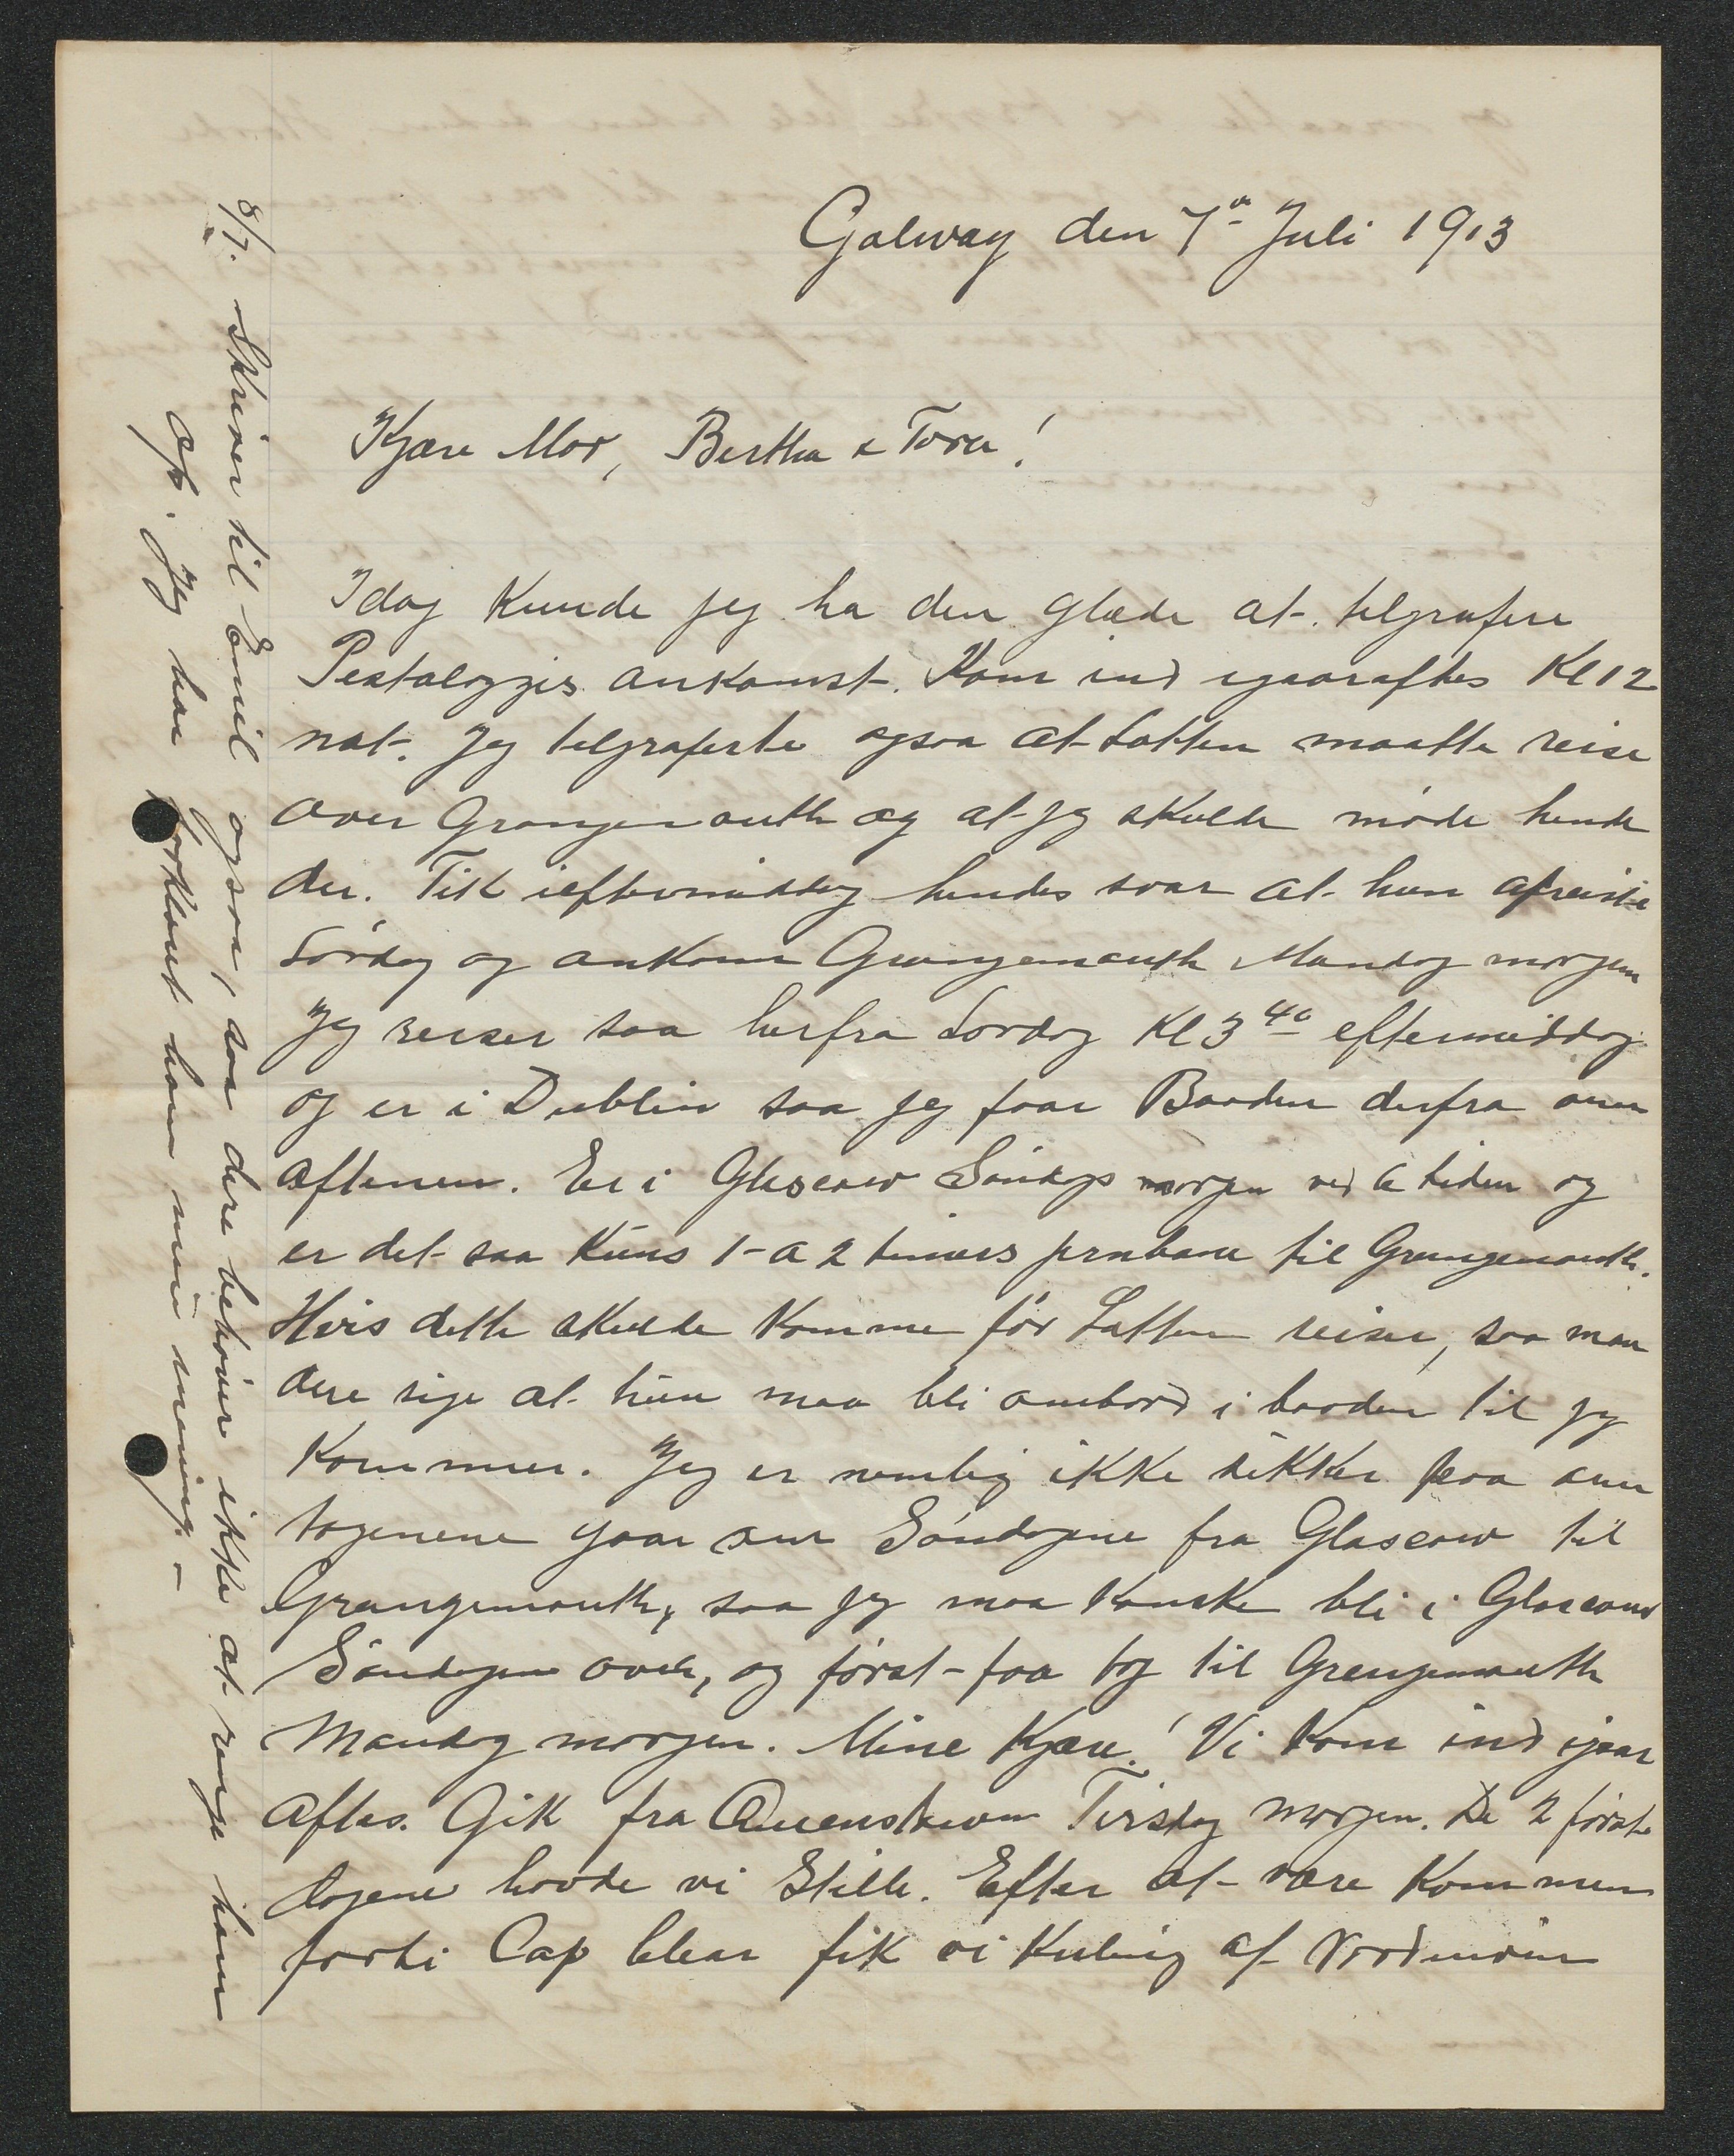 Galway den 7de Juli 1913
Kjære Mor, Bertha & Tora!
Idag kunde jeg ha den glæde at telgrafere
Pestalozzis ankomst. Kom ind igaaraftes Kl 12
nat. Jeg telgraferte ogsaa at Lotten maatte reise
over Grangemouth og at jeg skulde møde hende
der. Fik ieftermiddag hendes svar at hun afreiste
Lørdag og ankom Grangemouth Mandag morgen
Jeg reiser saa herfra Lørdag Kl 3 40 eftermiddag
og er i Dublin saa jeg faar Baaden derfra om
aftenen. Er i Glascow Søndags morgen ved 6 tiden og
er det saa kuns 1 a 2 timers jernbane til Grangemouth.
Hvis dette skulde komme før Lotten reiser, saa maa
dere sige at hun maa bli ombord i baaden til jeg
kommer. Jeg er nemlig ikke sikker paa om
togenene gaar om Søndagene fra Glascow til
Grangemouth, saa jeg maa kanske bli i Glascow
Søndagen over, og først faa tog til Grangemouth
Mandag morgen. Mine Kjære! Vi kom ind igaar
aftes. Gik fra Queenstown Tirsdag morgen. De 2 første
dagene havde vi Stille. Efter at være kommen
forbi Cap Clear fik vi Kuling af Nord
8/7. Skriver til Emil ogsaa, saa dere behøver ikke at renge ham
op. Jeg har forklart ham min mening. -